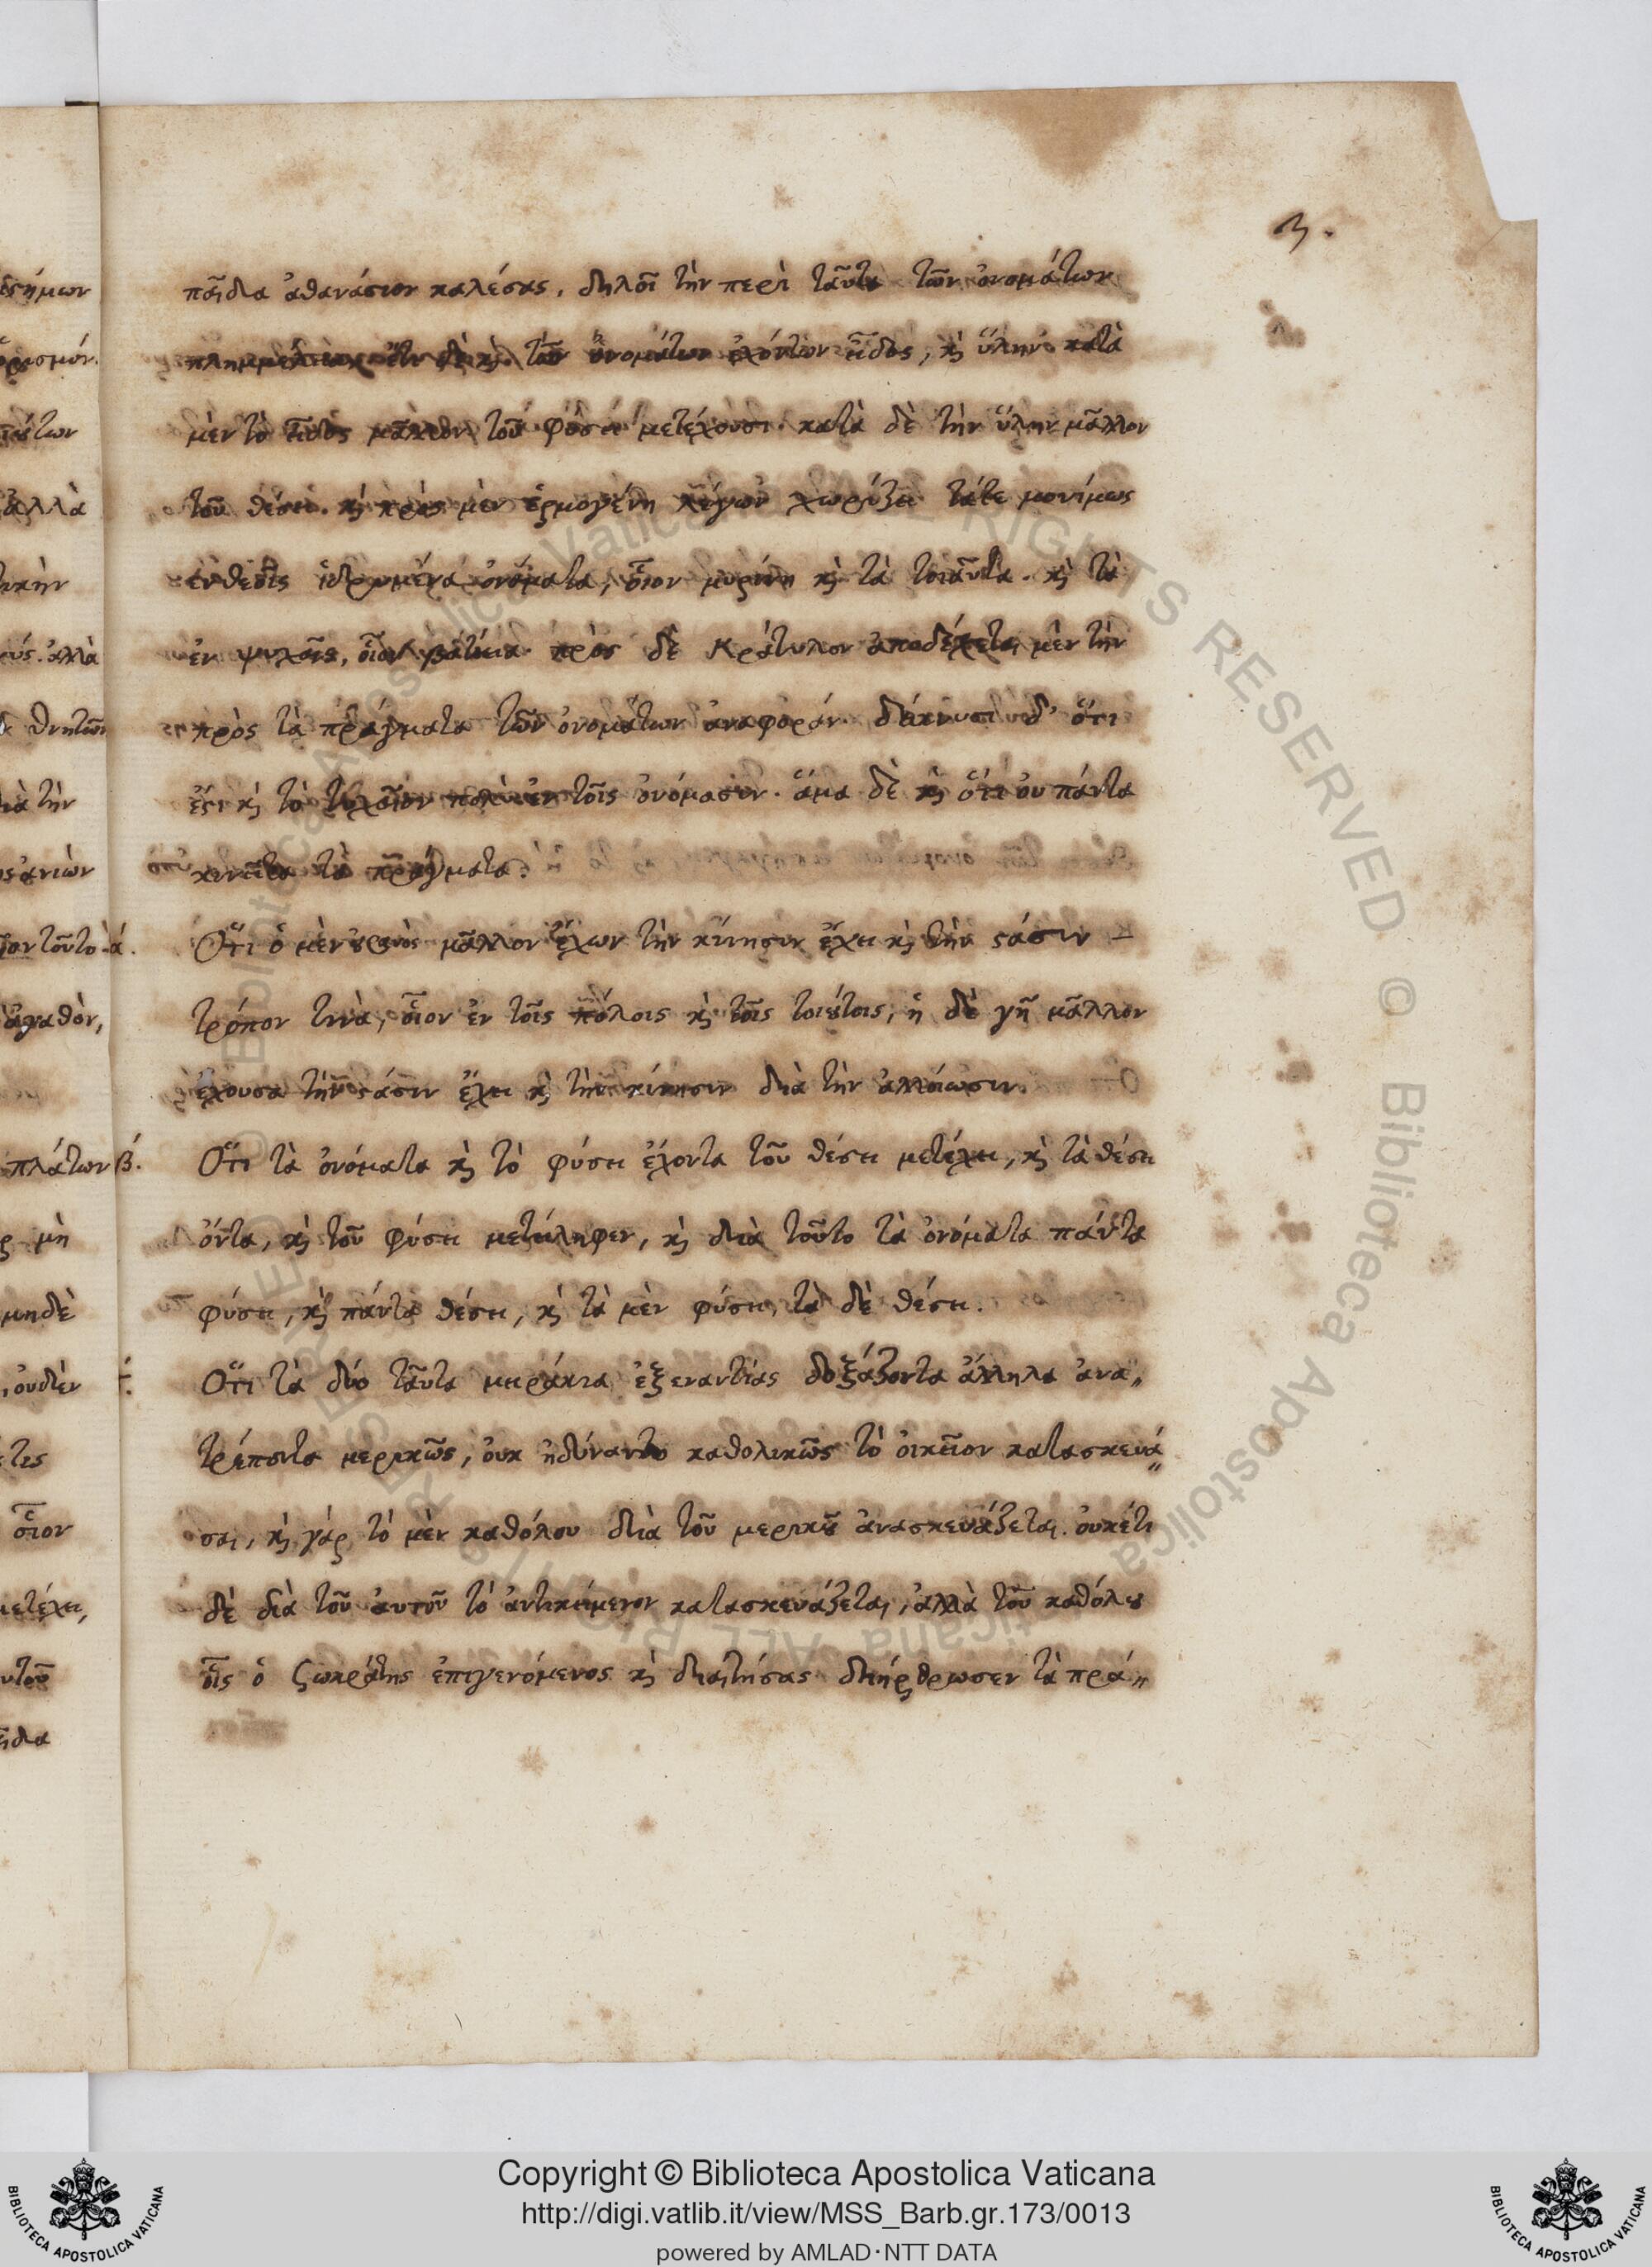 3.
παῖδα ἀθανάσιον καλέσας, δηλοῖ τὴν περὶ ταῦτα τῶν ὀνομάτων
πλημμέλειαν ἔτι δὲ καὶ τῶν ὀνομάτων ἐχόντων εἶδος, καὶ ὕλην κατὰ
μὲν τὸ εἶδος μᾶλλον τοῦ φύσει μετέχουσι. κατὰ δὲ τὴν ὕλην μᾶλλον
τοῦ θέσει. καὶ πρὸς μὲν ἑρμογένη λέγων χωρίζει τάτε μονίμως
ἐνθεοῖς ἱδρυμένα ὀνόματα, οἷον μυρίνη καὶ τὰ τοιαῦτα. καὶ τὰ
ἐν ψυχαῖς, οἷον βατίεια πρὸς δὲ Κράτυλον ἀποδέχεται μὲν τὴν
πρὸς τὰ πράγματα τῶν ὀνομάτων ἀναφοράν. δείκνυσι δ' ὅτι
ἔστι καὶ τὸ τυχαῖον πολὺ ἐν τοῖς ὀνόμασιν. ἅμα δὲ καὶ ὅτι οὐ πάντα
κινεῖται τὰ πράγματα.
ά. Ὅτι ὁ μὲν οὐρανὸς μᾶλλον ἔχων τὴν κίνησιν ἔχει καὶ τὴν στάσιν –
τρόπον τινὰ, οἷον ἐν τοῖς πόλοις καὶ τοῖς τοιούτοις, ἡ δὲ γῆ μᾶλλον
ἔχουσα τὴν στάσιν ἔχει καὶ τὴν κίνησιν διὰ τὴν ἀλλοίωσιν.
β. Ὅτι τὰ ὀνόματα καὶ τὸ φύσει ἔχοντα τοῦ θέσει μετέχει, καὶ τὰ θέσει
ὄντα, καὶ τοῦ φύσει μετείληφεν, καὶ διὰ τοῦτο τὰ ὀνόματα πάντα
φύσει, καὶ πάντα θέσει, καὶ τὰ μὲν φύσει, τὰ δὲ θέσει.
Ὅτι τὰ δύο ταῦτα μειράκια ἐξεναντίας δοξάζοντα ἄλληλα ἀνα„
τρέποντα μερικῶς, οὐκ ἠδύναντο καθολικῶς τὸ οἰκεῖον κατασκευά„
σαι, καὶ γάρ τὸ μὲν καθόλου διὰ τοῦ μερικοῦ ἀνασκευάζεται. οὐκέτι
δὲ διὰ τοῦ αὐτοῦ τὸ ἀντικείμενον κατασκευάζεται, ἀλλὰ τοῦ καθόλου
οἷς ὁ Σωκράτης ἐπιγενόμενος καὶ διαιτήσας διήρθρωσεν τὰ πρά„
Copyright © Biblioteca Apostolica Vaticana
http://digi.vatlib.it/view/MSS_Barb.gr.173/0013
powered by AMLAD·NTT DATA